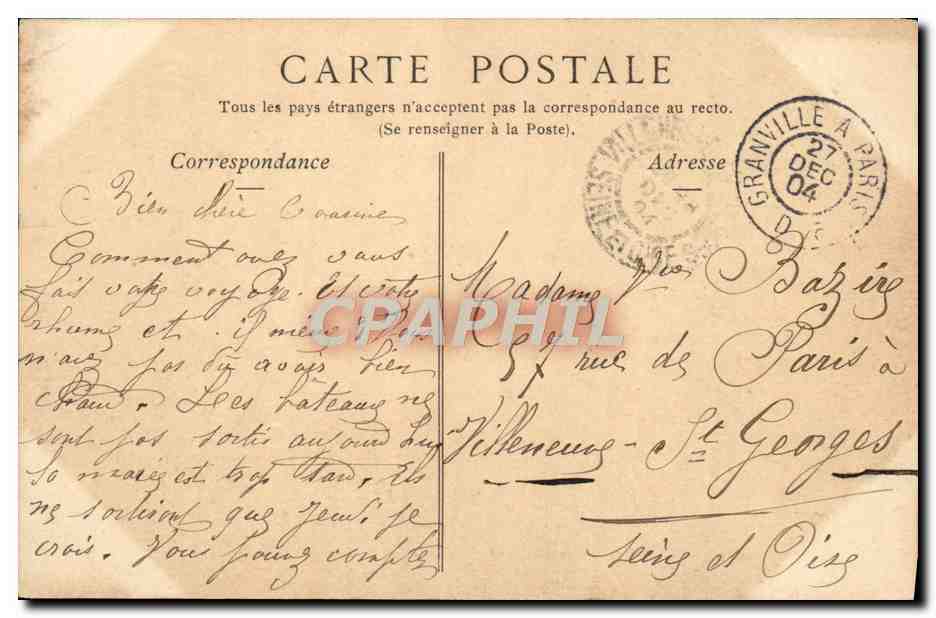 CARTE POSTALE
Tous les pays étrangers n'acceptent pas la correspondance au recto.
(Se renseigner à la Poste).
Correspondance
Bien chère Cousine
Comment avez vous
fait votre voyage. Et votre
rhume et
n'avez pas dû avoir bien
chaud. Les bâteaux ne
sont pas sortis aujourd'hui
la marée est trop tard. Ils
ne sortiront que Jeudi je
crois. Vous pouvez compter
Adresse
GRANVILLE A PARIS
27
DEC
04
Madame Vve Bazire
57 rue de Paris à
Villeneuve - St Georges
Seine et Oise
CPAPHIL